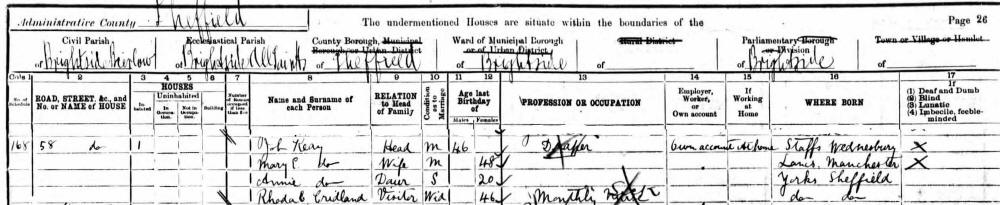 Administrative County Sheffield The undermentioned Houses are situate within the boundaries of the Page 26
Civil Parish Ecclesiastical Parish County Borough, Municipal Borough, or Urban District Ward of Municipal Borough or of Urban District Rural District Parliamentary Borough or Division Town or Village or Hamlet
of Brightside Bierlow of Brightside All Saints of Sheffield of Brightside of of Brightside of
Cols. 1 2 3 4 5 6 7 8 9 10 11 12 13 14 15 16 17
No. of Schedule ROAD, STREET, &c., and No. or NAME of HOUSE HOUSES Inhabited Uninhabited In Occupation Not in Occupation Building Number of Rooms occupied if less than five Name and Surname of each Person RELATION to Head of Family Condition as to Marriage Age last Birthday of Males Females PROFESSION OR OCCUPATION Employer, Worker, or Own account If Working at Home WHERE BORN If (1) Deaf and Dumb (2) Blind (3) Lunatic (4) Imbecile, feeble-minded
168 58 do 1 Keay Head M 46 Draper Own account At home Staffs Wednesbury X
Mary E do Wife M 48 Lancs. Manchester X
Annie do Daur S 20 Yorks Sheffield
Rhoda E Cridland Visitor Wid 46 Monthly Nurse do do